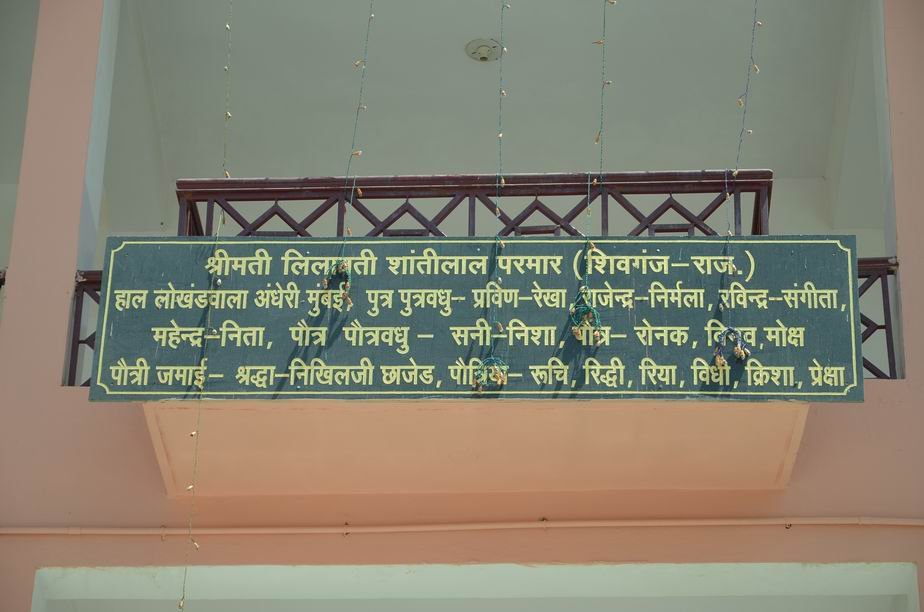 श्रीमती लिलावती शांतीलाल परमार (शिवगंज-राज.)
हाल लोखंडवाला अंधेरी मुंबई, पुत्र पुत्रवधु- प्रविण-रेखा, गजेन्द्र-निर्मला, रविन्द्र-संगीता,
महेन्द्र-निता, पौत्र पौत्रवधु - सनी-निशा, पौत्र- रोनक, मोक्ष
पौत्री जमाई- श्रद्धा-निखिलजी छाजेड, - रूचि, रिद्धी, रिया, विधी, क्रिशा, प्रेक्षा